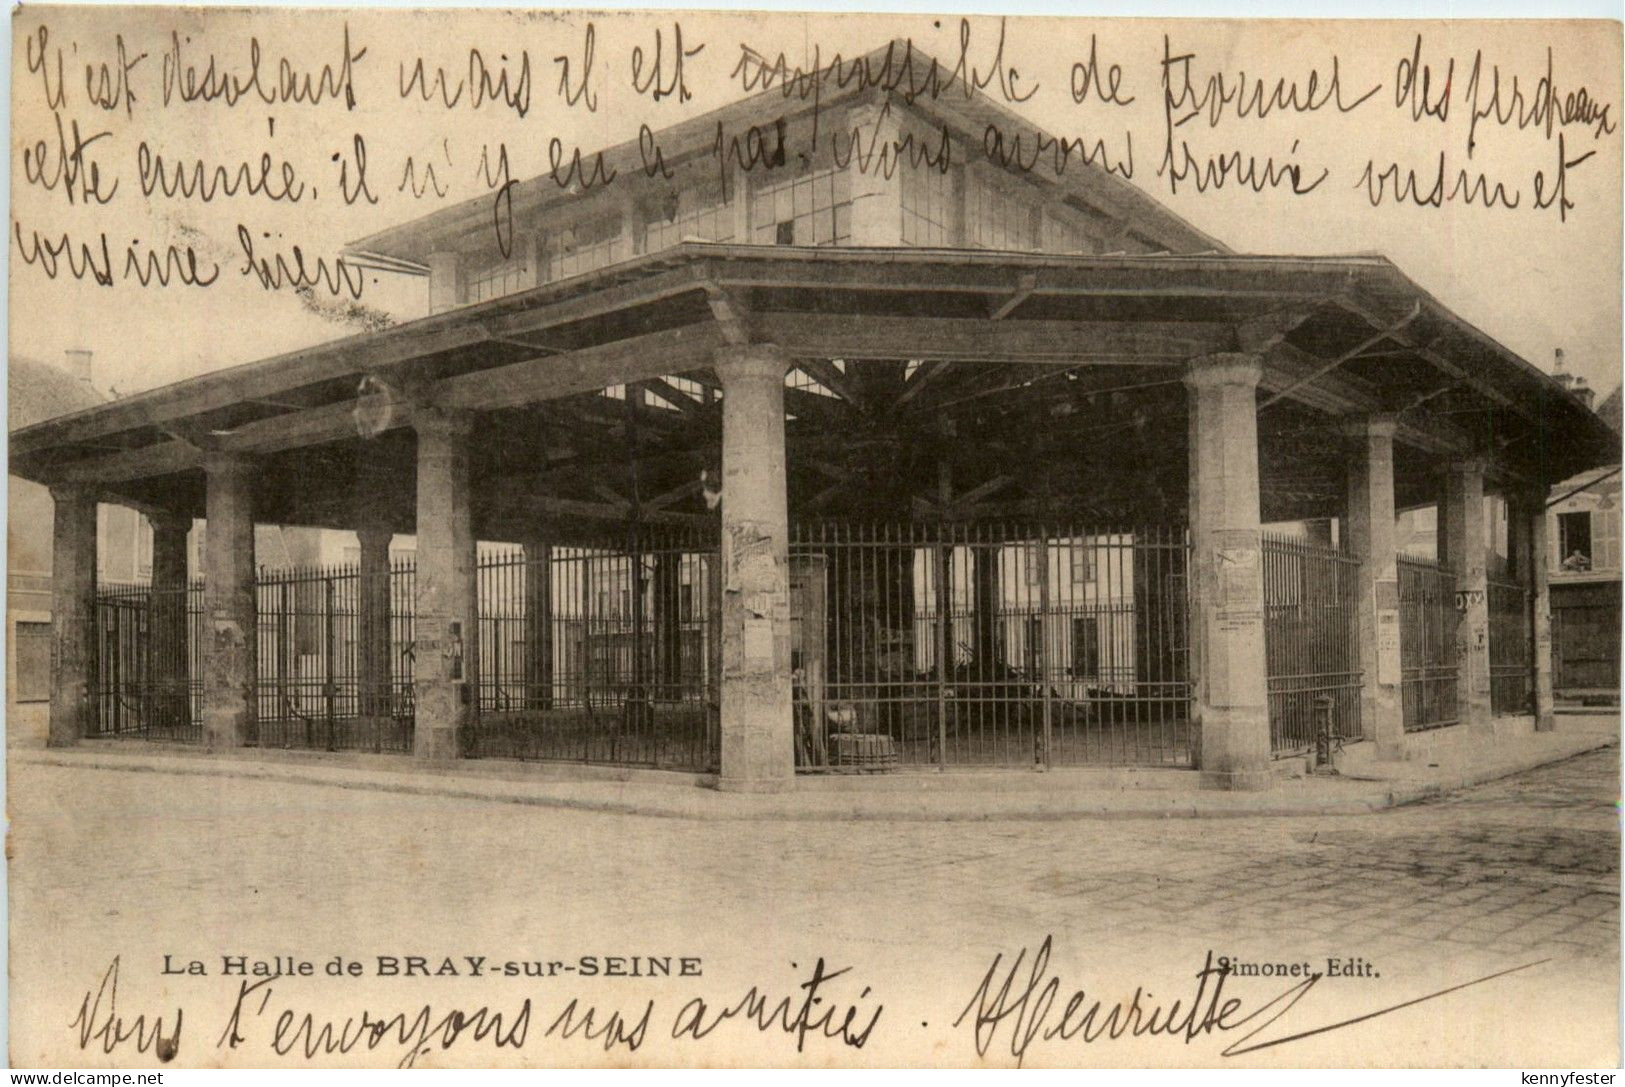 C'est désolant mais il est impossible de trouver des perdreaux
cette année. il n'y en a pas. Nous avons trouvé cousin et
cousine bien.
La Halle de BRAY-sur-SEINE
Simonet, Edit.
Nous t'envoyons nos amitiés. Henriette
delcampe.net
kennyfester